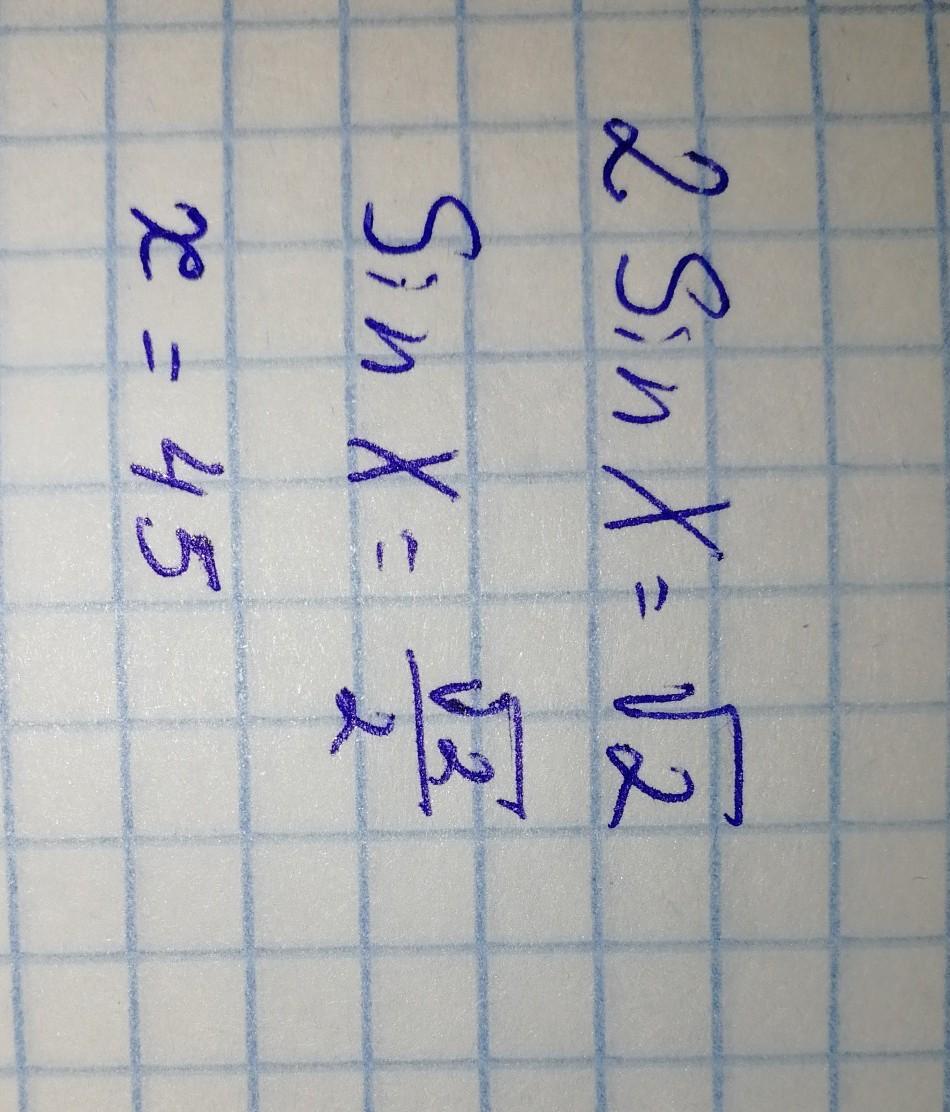 2 Sin X = √2
Sin X = √2/2
x = 45